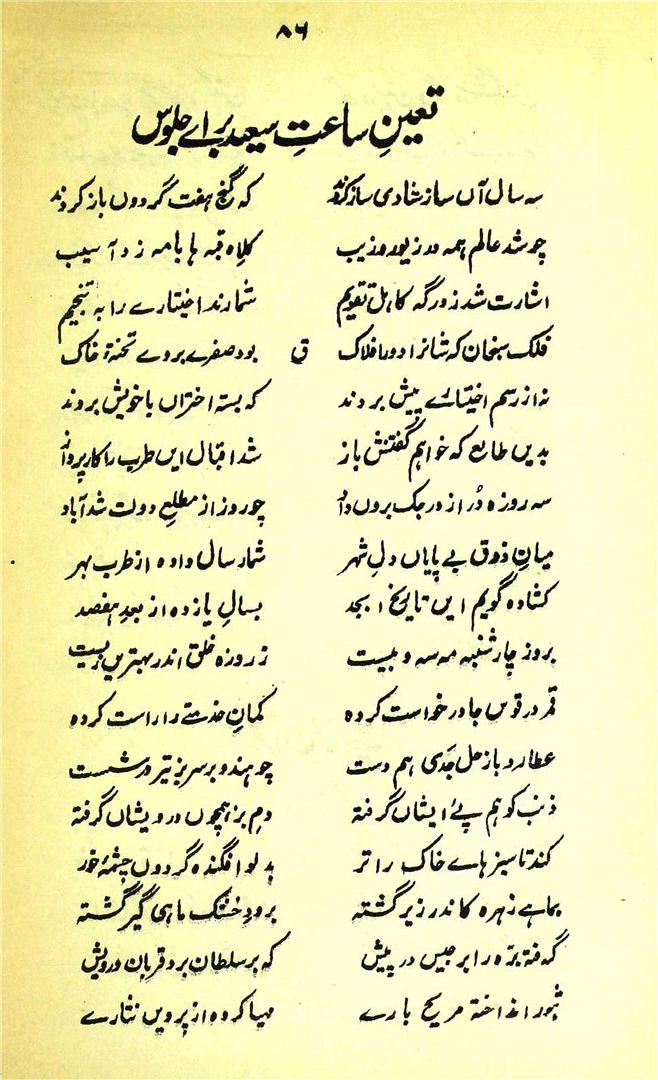 ۸۶
تعینِ ساعتِ سعید برائے جلوس
سہ سال آں ساز شادی ساز کردند که گنج هفت گردوں باز کردند
چو شد عالم همه در زیور و زیب کلاه قبه ها با مه زد آسیب
اشارت شد ز درگه کاهل تقویم شمارند اختیارے را به تنجیم
فلک سنجان که شانرا دور افلاک ق بود صفرے بروے تختهٔ خاک
نه از رسم اختیارے پیش بردند که بسته اختراں با خویش بردند
بدیں طالع که خواهم گفتنش باز شد اقبال ایں طرب را کار پرداز
سه روزه دُر از درجک بروں داد چو روز از مطلعِ دولت شد آباد
میانِ ذوق بے پایاں دلِ شهر شمار سال داده از طرب بهر
کشاده گویم ایں تاریخ ابجد بسالِ یازده از بعد هفصد
بروز چارشنبه مه سه و بیست ز روزه خلق اندر بهتریں زیست
قمر در قوس جا درخواست کرده کمانِ خدمتے را راست کرده
عطارد باز حل جَدی هم دست چو هندو بر سر بز تیر در شست
ذنب کو هم پئے ایشاں گرفته دم بز همچوں درویشاں گرفته
کند تا سبزهاے خاک را تر به دلو افگنده گردوں چشمهٔ خور
بماهے زهره کاندر زیر گشته برود خشک ماهی گیر گشته
گرفته برّه را برجیس در پیش که بر سلطان برد قربان درویش
بثور انداخته مریخ بارے مهیا کرده از پرویں نثارے